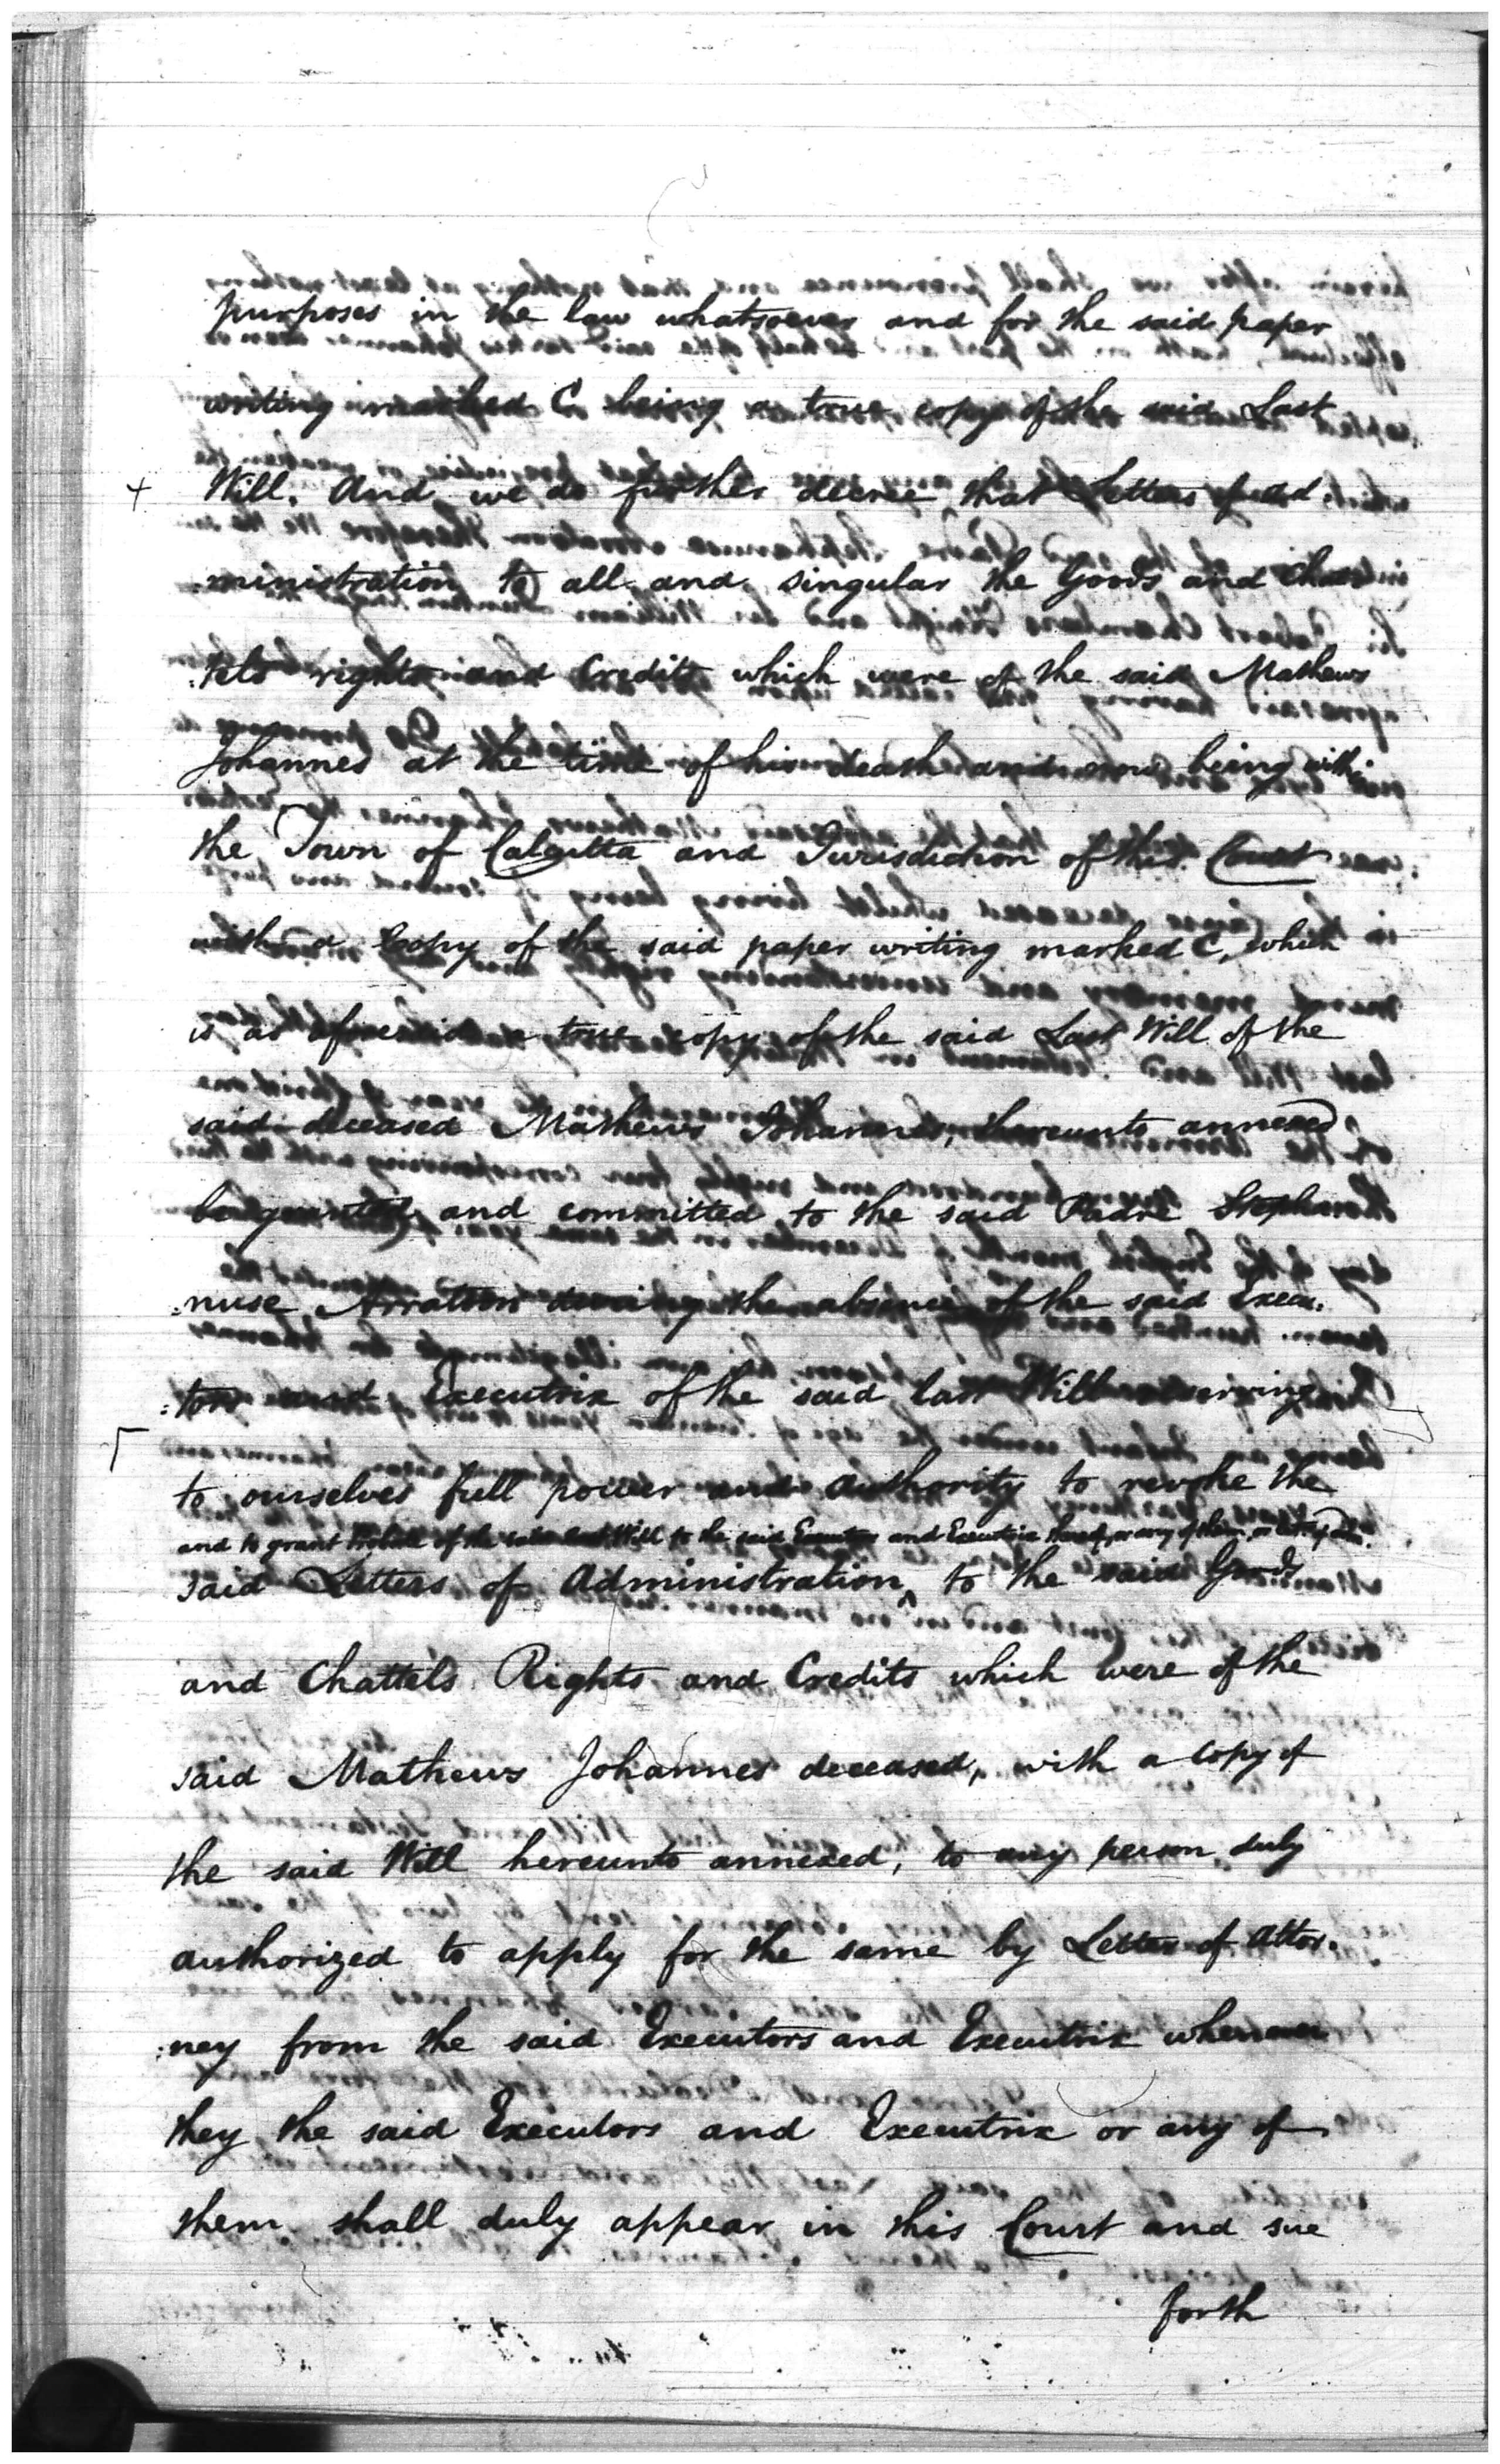 purposes in the law whatsoever and for the said paper
writing marked C being a true copy of the said Last
+ Will. And we do further decree that Letters of ad:
ministration to all and singular the Goods and Chat
:tels rights and Credits which were of the said Mathews
Johannes at the time of his death and now being within
the Town of Calcutta and Jurisdiction of this Court
with a Copy of the said paper writing marked C, which
is as aforesaid a true copy of the said Last Will of the
said deceased Mathews Johannes, thereunto annexed
be granted and committed to the said Padre Stepha
:nuse Arratoon during the absence of the said Execu:
:tors and Executrix of the said last Will reserving
to ourselves full power and authority to revoke the
and to grant Probate of the said last Will to the said Executors and Executrix thereof, or any of them, or
said Letters of Administration ^ to the said Goods
and Chattels Rights and Credits which were of the
said Mathews Johannes deceased, with a Copy of
the said Will hereunto annexed, to any person duly
authorized to apply for the same by Letter of Attor:
:ney from the said Executors and Executrix whenever
they the said Executors and Executrix or any of
them shall duly appear in this Court and sue
forth